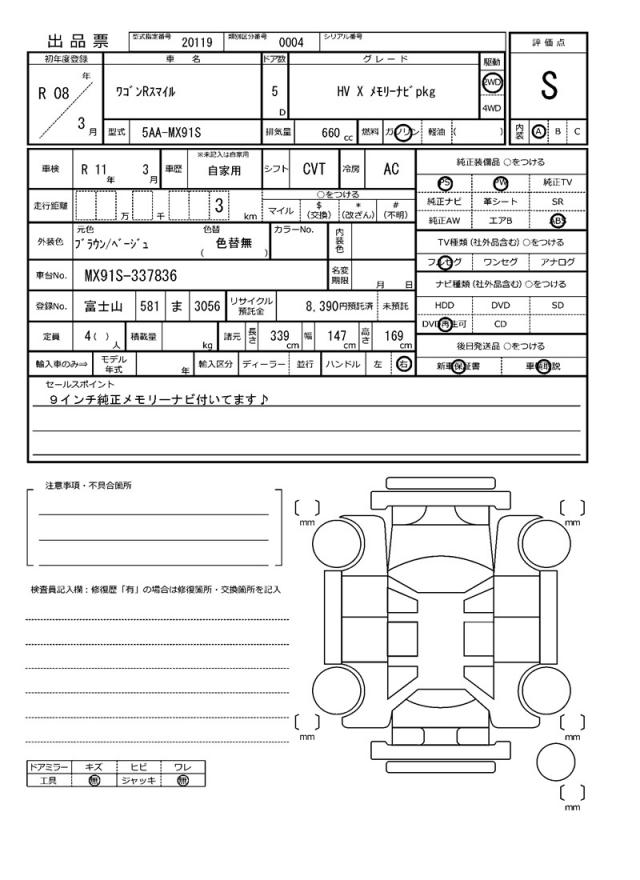 出品票 型式指定番号 20119 類別区分番号 0004 シリアル番号
評価点
S
初年度登録 車名 ドア数 グレード 駆動
R 08 年 3 月 ワゴンRスマイル 5 D HV X メモリーナビpkg 2WD 4WD
型式 5AA-MX91S 排気量 660 cc 燃料 ガソリン 軽油 ( ) 内装 A B C
車検 R 11 年 3 月 車歴 ※未記入は自家用 自家用 シフト CVT 冷房 AC
純正装備品 ○をつける
PS PW 純正TV
純正ナビ 革シート SR
純正AW エアB ABS
走行距離 万 千 3 km ○をつける
マイル $(交換) *(改ざん) #(不明)
外装色 元色 ブラウン/ベージュ 色替 ( 色替無 ) カラーNo. 内装色
TV種類(社外品含む)○をつける
フルセグ ワンセグ アナログ
車台No. MX91S-337836 名変期限 月 日
ナビ種類(社外品含む)○をつける
HDD DVD SD
DVD再生可 CD
登録No. 富士山 581 ま 3056 リサイクル預託金 8,390円預託済 未預託
定員 4( ) 人 積載量 kg 諸元 長さ 339 cm 幅 147 cm 高さ 169 cm
後日発送品 ○をつける
新車保証書 車輌取説
輸入車のみ⇒ モデル年式 年 輸入区分 ディーラー 並行 ハンドル 左 右
セールスポイント
9インチ純正メモリーナビ付いてます♪
注意事項・不具合箇所
検査員記入欄：修復歴「有」の場合は修復箇所・交換箇所を記入
mm
mm
mm
mm
mm
ドアミラー キズ ヒビ ワレ
工具 無 ジャッキ 無